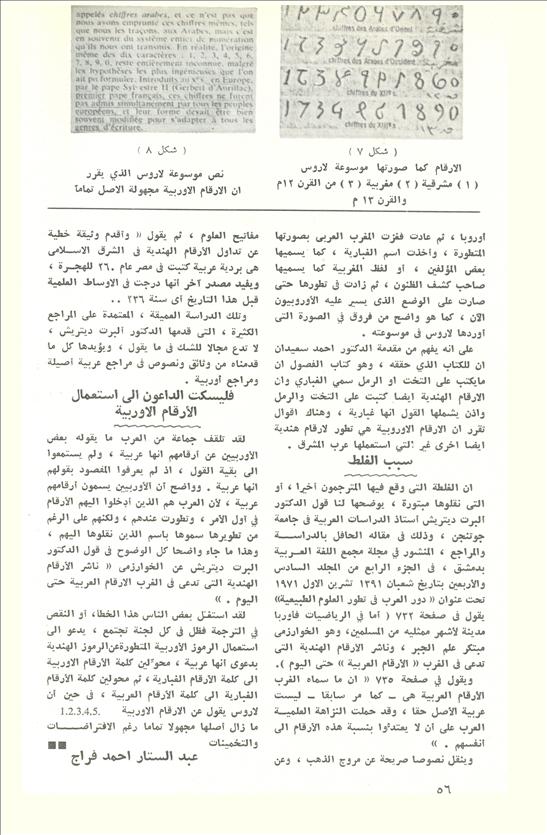 appelés chiffres arabes, et ce n'est pas que
nous ayons emprunté ces chiffres mêmes, tels
que nous les traçons, aux Arabes, mais c'est
en souvenir du système entier de numération
qu'ils nous ont transmis. En réalité, l'origine
même des dix caractères : 1, 2, 3, 4, 5, 6,
7, 8, 9, 0, reste entièrement inconnue, malgré
les hypothèses les plus ingénieuses que l'on
ait pu formuler. Introduits au Xe s. en Europe,
par le pape Sylvestre II (Gerbert d'Aurillac),
premier pape français, ces chiffres ne furent
pas admis simultanément par tous les peuples
européens, et leur forme devait être bien
souvent modifiée pour s'adapter à tous les
genres d'écriture.
( شكل ٨ )
نص موسوعة لاروس الذي يقرر
ان الارقام الاوربية مجهولة الاصل تماما
chiffres des Arabes d'Orient
chiffres des Arabes d'Occident
chiffres du XIIe s.
1 7 3 4 6 7 8 9 0
chiffres du XIIIe s.
( شكل ٧ )
الارقام كما صورتها موسوعة لاروس
( ١ ) مشرقية ( ٢ ) مغربية ( ٣ ) من القرن ١٢م
والقرن ١٣ م
اوروبا ، ثم عادت فغزت المغرب العربى بصورتها
المتطورة ، واخذت اسم الغبارية ، كما يسميها
بعض المؤلفين ، أو لفظ المغربية كما يسميها
صاحب كشف الظنون ، ثم زادت فى تطورها حتى
صارت على الوضع الذى يسير عليه الأوروبيون
الآن ، كما هو واضح من فروق في الصورة التى
أوردها لاروس فى موسوعته .
على انه يفهم من مقدمة الدكتور احمد سعيدان
ان للكتاب الذي حققه ، وهو كتاب الفصول ان
مايكتب على التخت او الرمل سمي الغباري وان
الارقام الهندية ايضا كتبت على التخت والرمل
واذن يشملها القول انها غبارية ، وهناك اقوال
تقرر ان الارقام الاوروبية هي تطور لارقام هندية
ايضا اخرى غير التي استعملها عرب المشرق .
سبب الغلط
ان الغلطة التى وقع فيها المترجمون أخيرا ، أو
التى نقلوها مبتورة ، يوضحها لنا قول الدكتور
البرت ديتريش أستاذ الدراسات العربية فى جامعة
جوتنجن ، وذلك فى مقاله الحافل بالدراسة
والمراجع ، المنشور في مجلة مجمع اللغة العربية
بدمشق ، فى الجزء الرابع من المجلد السادس
والأربعين بتاريخ شعبان ١٣٩١ تشرين الاول ١٩٧١
تحت عنوان « دور العرب فى تطور العلوم الطبيعية»
يقول فى صفحة ٧٣٢ ( أما في الرياضيات فأوربا
مدينة لأشهر ممثليه من المسلمين، وهو الخوارزمى
مبتكر علم الجبر ، وناشر الأرقام الهندية التى
تدعى فى الغرب « الأرقام العربية » حتى اليوم ).
ويقول في صفحة ٧٣٥ « ان ما سماه الغرب
الأرقام العربية هى – كما مر سابقا – ليست
عربية الأصل حقا ، وقد حملت النزاهة العلمية
العرب على ان لا يعتدّوا بنسبة هذه الأرقام الى
انفسهم . »
وينقل نصوصا صريحة عن مروج الذهب ، وعن
مفاتيح العلوم ، ثم يقول « وأقدم وثيقة خطية
عن تداول الأرقام الهندية فى الشرق الاسلامى
هى بردية عربية كتبت فى مصر عام ٢٦٠ للهجرة ،
ويفيد مصدر آخر انها درجت فى الأوساط العلمية
قبل هذا التاريخ أى سنة ٢٣٦ ..
وتلك الدراسة العميقة ، المعتمدة على المراجع
الكثيرة ، التى قدمها الدكتور ألبرت ديتريش ،
لا تدع مجالا للشك في ما يقول ، ويؤيدها كل ما
قدمناه من وثائق ونصوص فى مراجع عربية أصيلة
ومراجع أوربية .
فليسكت الداعون الى استعمال
الأرقام الاوربية
لقد تلقف جماعة من العرب ما يقوله بعض
الأوربيين عن أرقامهم انها عربية ، ولم يستمعوا
الى بقية القول ، اذ لم يعرفوا المقصود بقولهم
انها عربية . وواضح أن الأوربيين يسمون أرقامهم
عربية ، لأن العرب هم الذين أدخلوا اليهم الأرقام
فى أول الأمر ، وتطورت عندهم ، ولكنهم على الرغم
من تطويرها سموها باسم الذين نقلوها اليهم ،
وهذا ما جاء واضحا كل الوضوح فى قول الدكتور
البرت ديتريش عن الخوارزمى « ناشر الأرقام
الهندية التى تدعى فى الغرب الارقام العربية حتى
اليوم . »
لقد استغل بعض الناس هذا الخطأ، أو النقص
في الترجمة فظل فى كل لجنة تجتمع ، يدعو الى
استعمال الرموز الأوربية المتطورةعن‌الرموز الهندية
بدعوى انها عربية ، محوّلين كلمة الأرقام الاوربية
الى كلمة الأرقام الغبارية ، ثم محولين كلمة الأرقام
الغبارية الى كلمة الأرقام العربية ، فى حين أن
لاروس يقول عن الارقام الاوربية 1.2.3.4.5.
ما زال اصلها مجهولا تماما رغم الافتراضات
والتخمينات
عبد الستار احمد فراج
٥٦